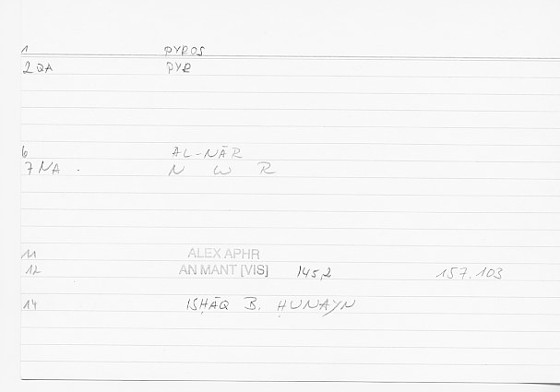 1 PYROS
2 QA PYR
6 AL-NĀR
7 NA . N W R
11 ALEX APHR
12 AN MANT [VIS] 145,2 157.103
14 ISḤĀQ B. ḤUNAYN